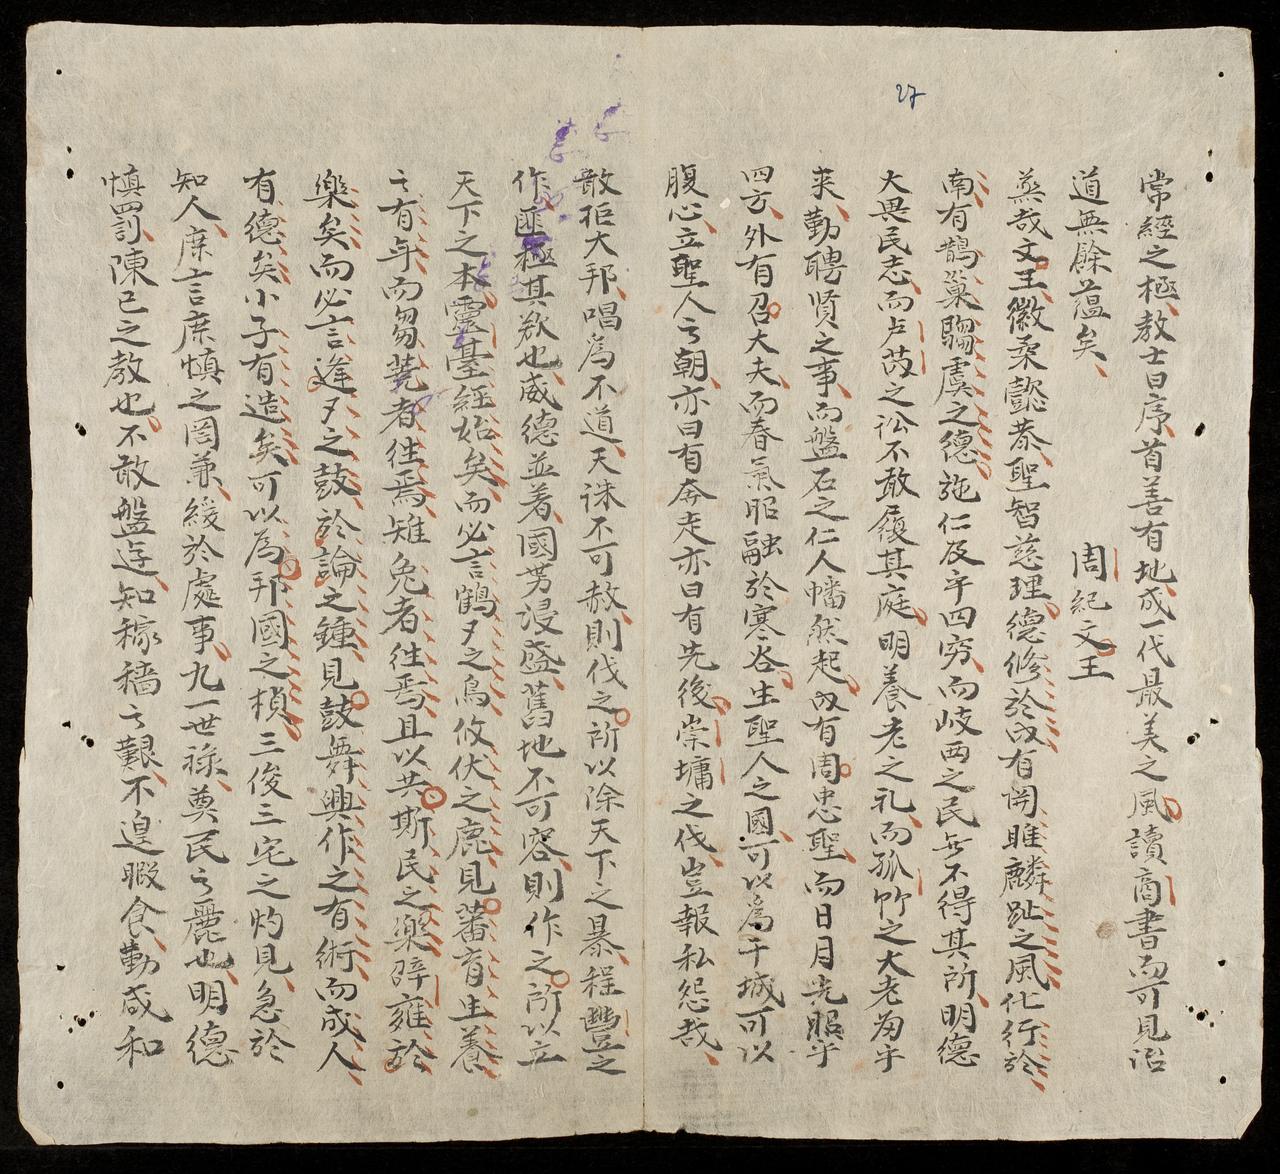 27
常經之極教士日序首善有地成一代最美之風讀商書而可見治
道無餘蘊矣
周紀文王
烝哉文王徽柔懿恭聖智慈理德修於內有関睢麟趾之風化行於
南有鵲巢騶虞之德施仁及乎四窮而岐西之民無不得其所明德
大畏民志而虞芮之訟不敢履其庭明養老之礼而孤竹之大老為乎
來勤聘賢之事而盤石之仁人幡然起內有周忠聖而日月光照乎
四方外有召大夫而春氣昭融於寒谷生聖人之國可以為干城可以
腹心立聖人之朝亦曰有奔走亦曰有先後崇墉之伐豈報私怨哉
敢拒大邦唱為不道天誅不可赦則伐之所以除天下之暴程豐之
作匪極其欲也威德並著國势浸盛舊地不可容則作之所以立
天下之本靈基經始矣而必言鶴夕之鳥攸伏之鹿見蕃育生養
之有年而芻蕘者徃焉雉兔者徃焉且以共斯民之樂辟雍於
樂矣而必言逢夕之鼓於論之鍾見鼓舞興作之有術而成人
有德矣小子有造矣可以為邦國之楨三俊三宅之灼見急於
知人庶言庶慎之罔兼緩於處事九一世祿奠民之麗也明德
慎罰陳已之教也不敢盤逰知稼穡之艱不遑暇食勤咸和